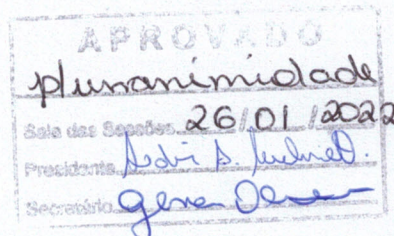 APROVADO
p/unanimidade
Sala das Sessões 26/01/2022
Presidente
Secretário